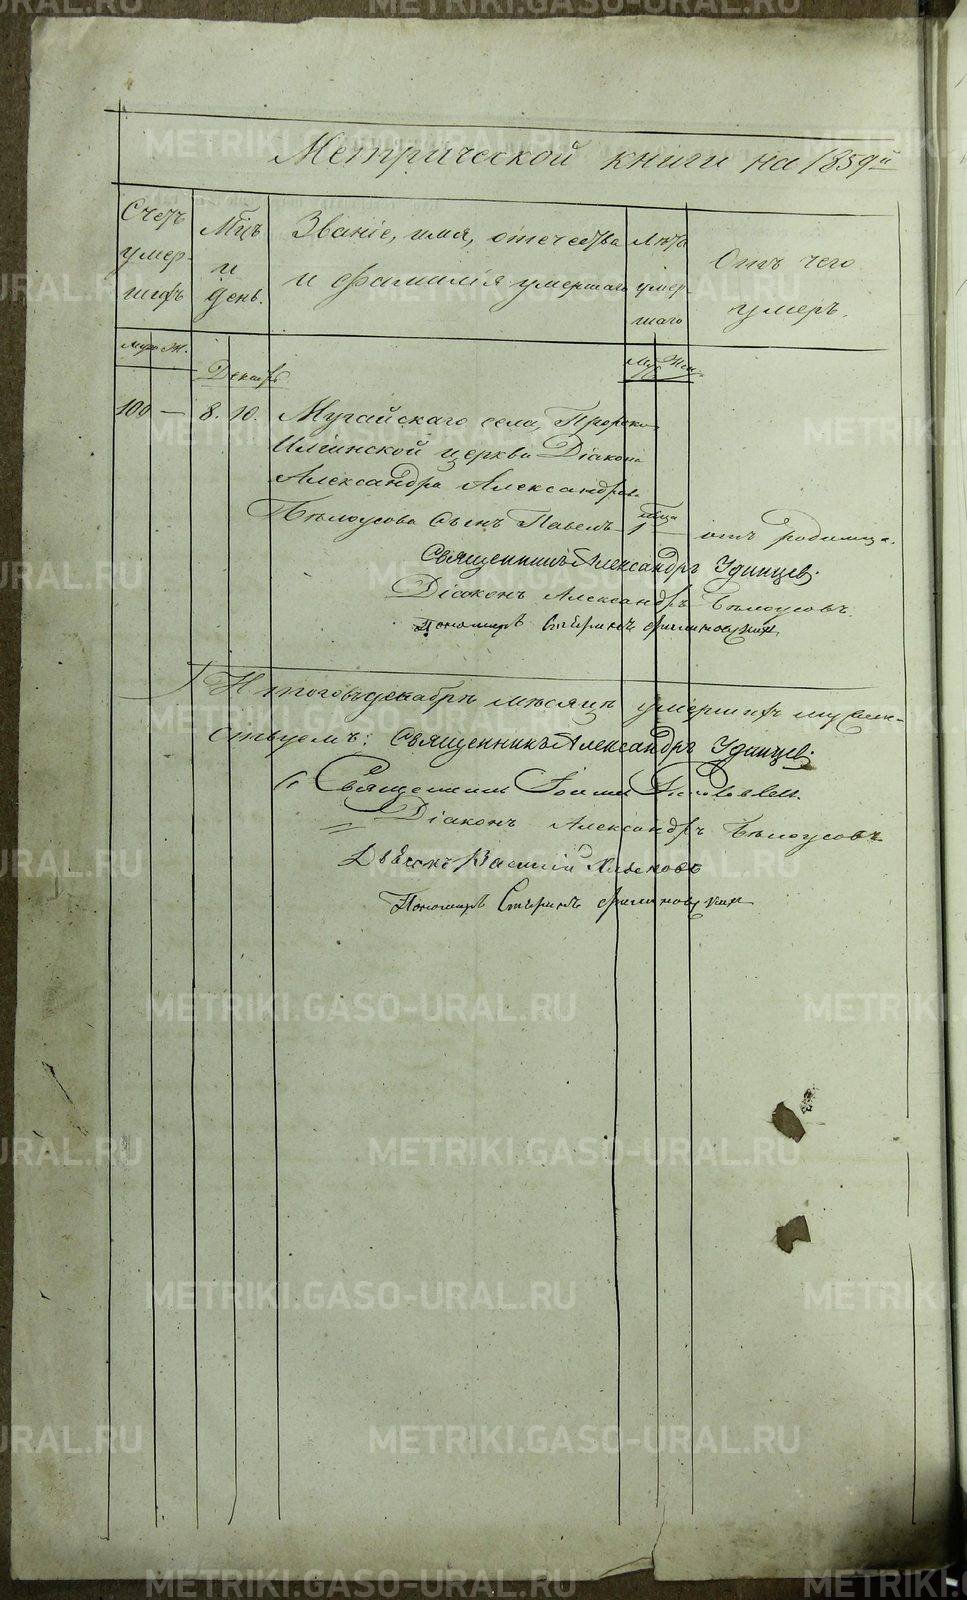 Метрической книги на 1859й
Счетъ умер шихъ
Мцъ и день.
Званіе, имя, отечество
и фамилія умершаго
Лѣта умер шаго
Отъ чего
умеръ.
Муж. Ж.
Декабрь
Муж. Жен.
100 — 8. 10. Мугайскаго села, Пророко-
Илiинской церкви Діакона
Александра Александрова
Бѣлоусова сынъ Павелъ 1 мѣсяца отъ родимца.
Священникъ Александръ Удинцев.
Діаконъ Александръ Бѣлоусовъ.
Пономарь
Итого въ декабрѣ мѣсяцѣ умершихъ
Священникъ Александръ Удинцев.
Священникъ Іоаннъ
Діаконъ Александръ Бѣлоусовъ
Василій
Пономарь
METRIKI.GASO-URAL.RU